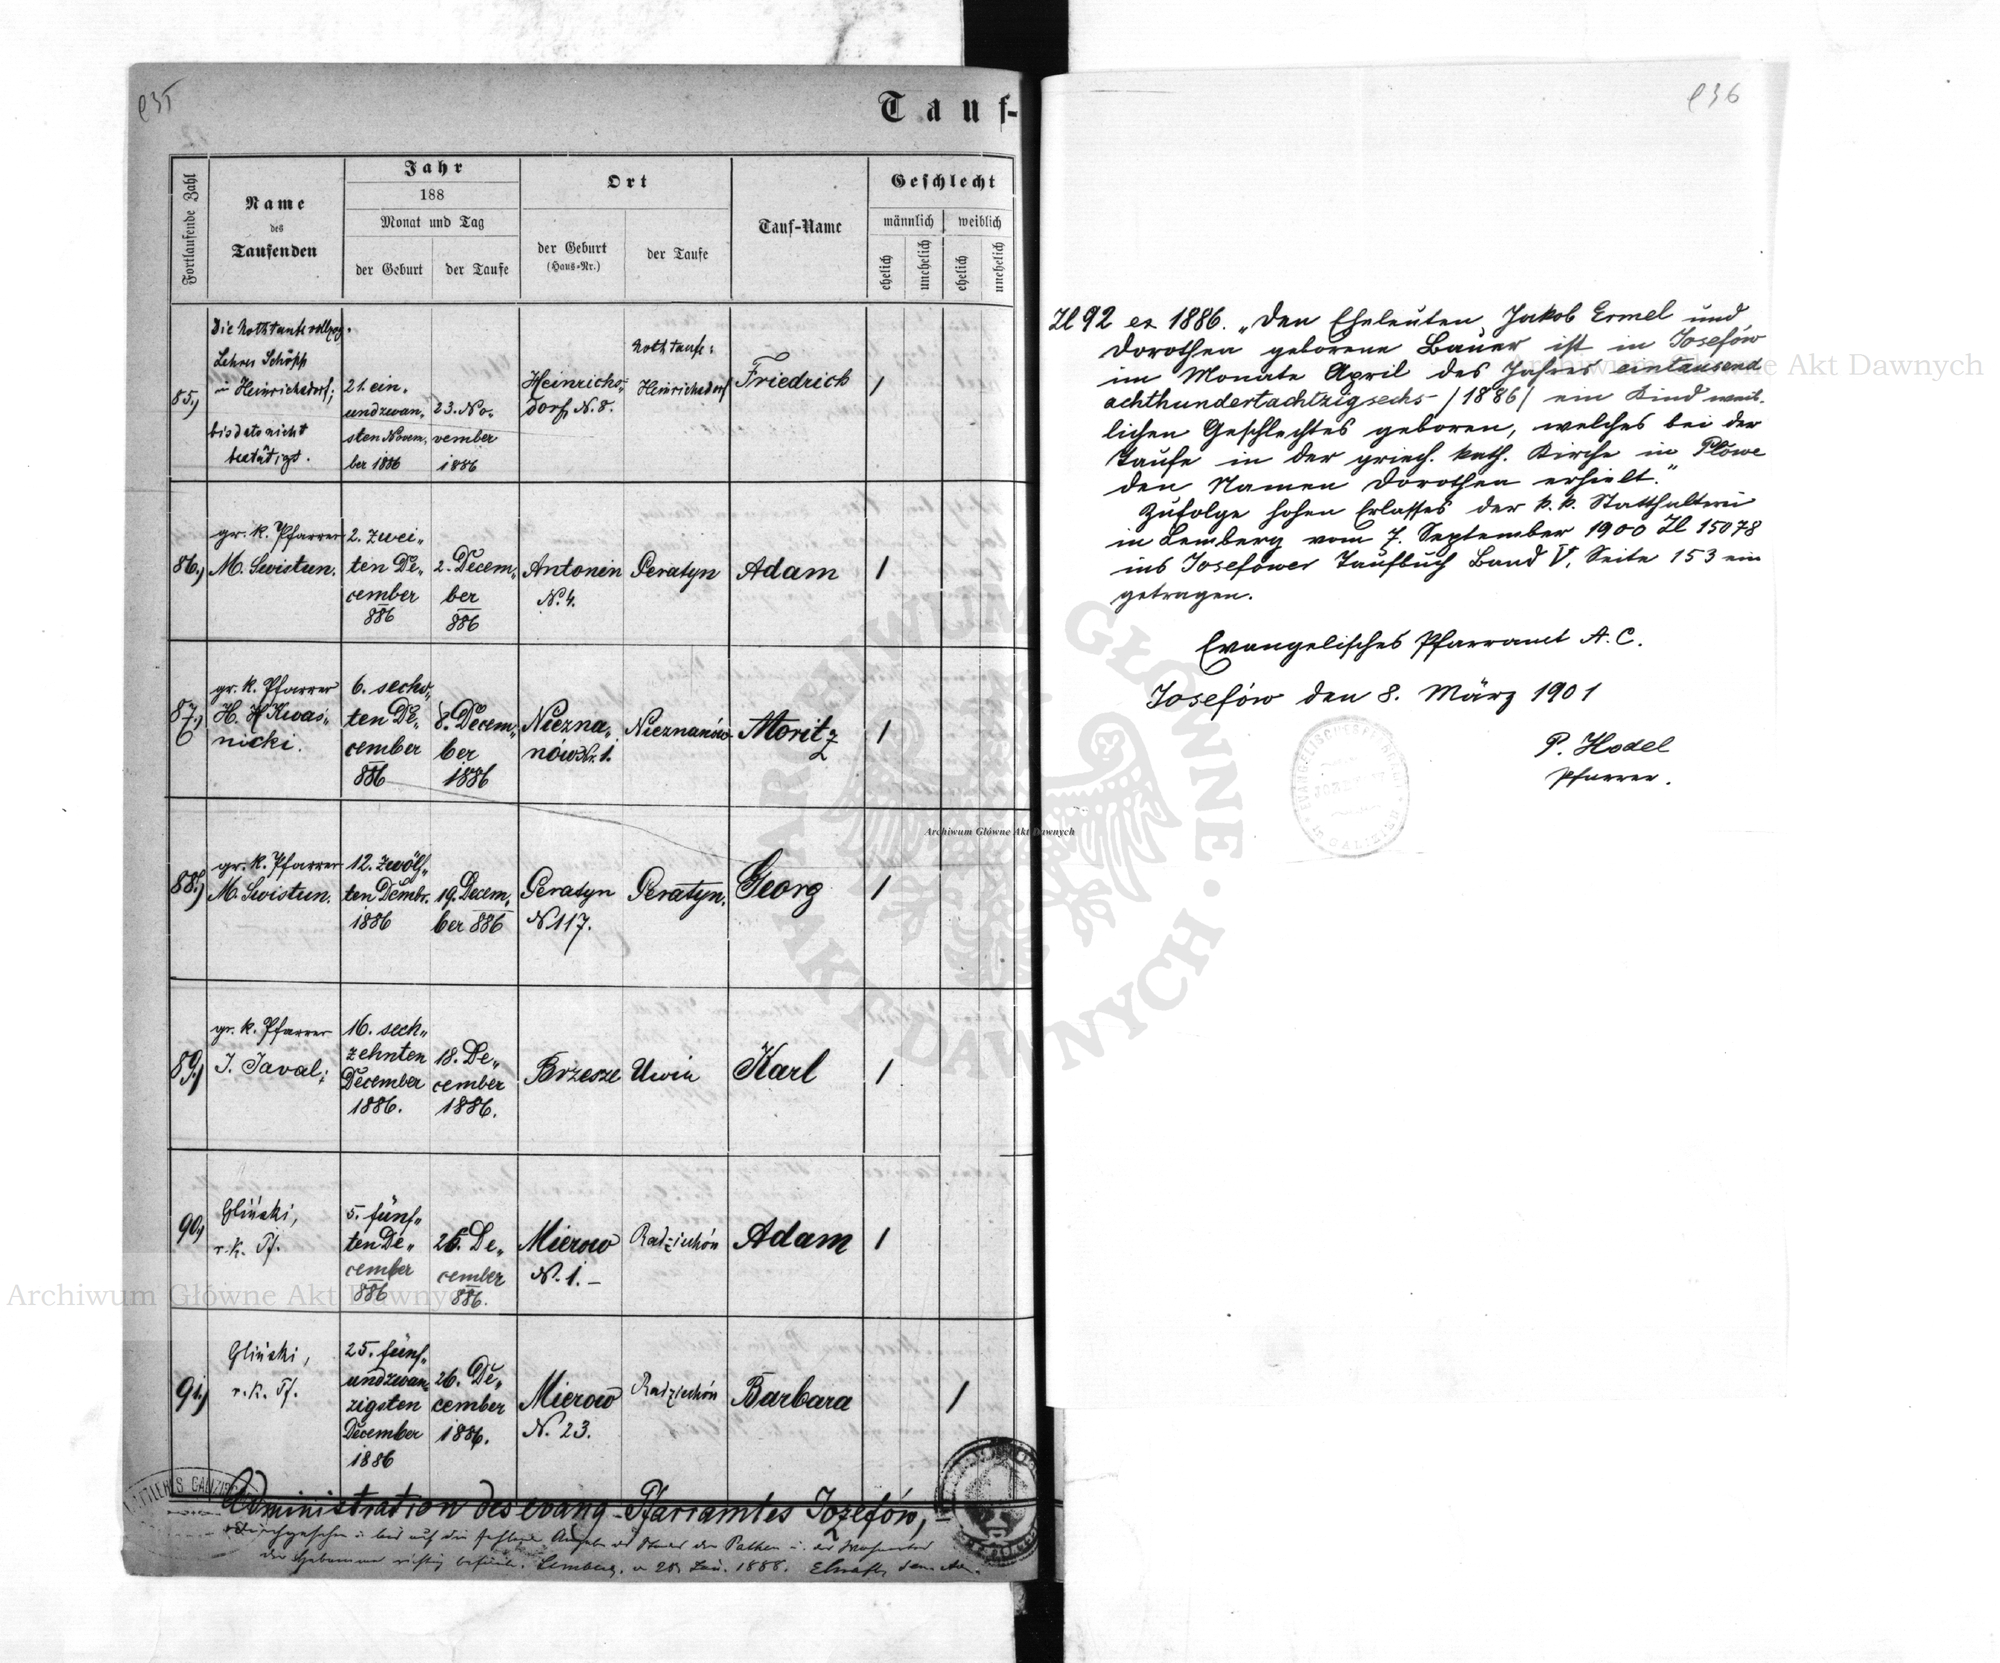 e35
Tauf-
Fortlaufende Zahl
Name
des
Taufenden
Jahr
188
Monat und Tag
der Geburt
der Taufe
Ort
der Geburt
(Haus-Nr.)
der Taufe
Tauf-Name
Geschlecht
männlich
weiblich
ehelich
unehelich
ehelich
unehelich
85.)
Die Nothtaufe vollzog.
Lehrer Schöpp
in Heinrichsdorf;
bis dato nicht
bestätigt.
21. ein-
undzwan-
sten Novem.
ber 1886
23. No-
vember
1886
Heinrichs-
dorf, N. 8.
Nothtaufe:
Heinrichsdorf
Friedrich
1
86.)
gr. k. Pfarrer
M. Swistun.
2. zwei-
ten De-
cember
886
2. Decem-
ber
886
Antonin
N. 4.
Peratyn
Adam
1
87.)
gr. k. Pfarrer
H. Kwaś-
nicki.
6. sechs-
ten De-
cember
886
8. Decem-
ber
1886
Niezna-
nów Nr. 1.
Nieznanów
Moritz
1
88.)
gr. k. Pfarrer
M. Swistun.
12. zwölf-
ten Dcmbr.
1886
19. Decem-
ber 886
Peratyn
N. 117.
Peratyn.
Georg
1
89.)
gr. k. Pfarrer
J. Javal;
16. sech-
zehnten
December
1886.
18. De-
cember
1886.
Brzesze
Uwin
Karl
1
90.)
Gliński,
r. k. Pf.
5. fünf-
ten De-
cember
886
26. De-
cember
886.
Mierow
N. 1. –
Radziechów
Adam
1
91.)
Gliński,
r. k. Pf.
25. fünf-
undzwan-
zigsten
December
1886
26. De-
cember
1886.
Mierow
N. 23.
Radziechów
Barbara
1
Administration des evang. Pfarramtes Józefów,
e36
Zl 92 ex 1886. „Den Eheleuten Jakob Ermel und
Dorothea geborene Bauer ist in Josefów
im Monate April des Jahres eintausend
achthundertachtzigsechs /1886/ ein Kind weib-
lichen Geschlechtes geboren, welches bei der
Taufe in der griech. kath. Kirche in Płowe
den Namen Dorothea erhielt."
Zufolge hohen Erlasses der k. k. Statthalterei
in Lemberg vom 7. September 1900 Zl 15078
ins Josefower Taufbuch Band V. Seite 153 ein
getragen.
Evangelisches Pfarramt A. C.
Josefów den 8. März 1901
P. Hodel
Pfarrer.
Archiwum Główne Akt Dawnych
Archiwum Główne Akt Dawnych
Archiwum Główne Akt Dawnych
ARCHIWUM GŁÓWNE · AKT DAWNYCH ·